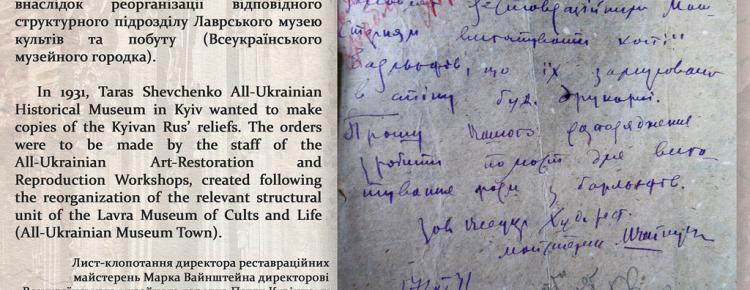 внаслідок реорганізації відповідного
структурного підрозділу Лаврського музею
культів та побуту (Всеукраїнського
музейного городка).
In 1931, Taras Shevchenko All-Ukrainian
Historical Museum in Kyiv wanted to make
copies of the Kyivan Rus' reliefs. The orders
were to be made by the staff of the
All-Ukrainian Art-Restoration and
Reproduction Workshops, created following
the reorganization of the relevant structural
unit of the Lavra Museum of Cults and Life
(All-Ukrainian Museum Town).
Лист-клопотання директора реставраційних
майстерень Марка Вайнштейна директорові
стерням виготування копій
барльєфів, що їх замуровано
в стіну буд. друкарні.
Прошу Вашого розпорядження
зробити помост для виго-
тування форм з барльєфів.
майстерні